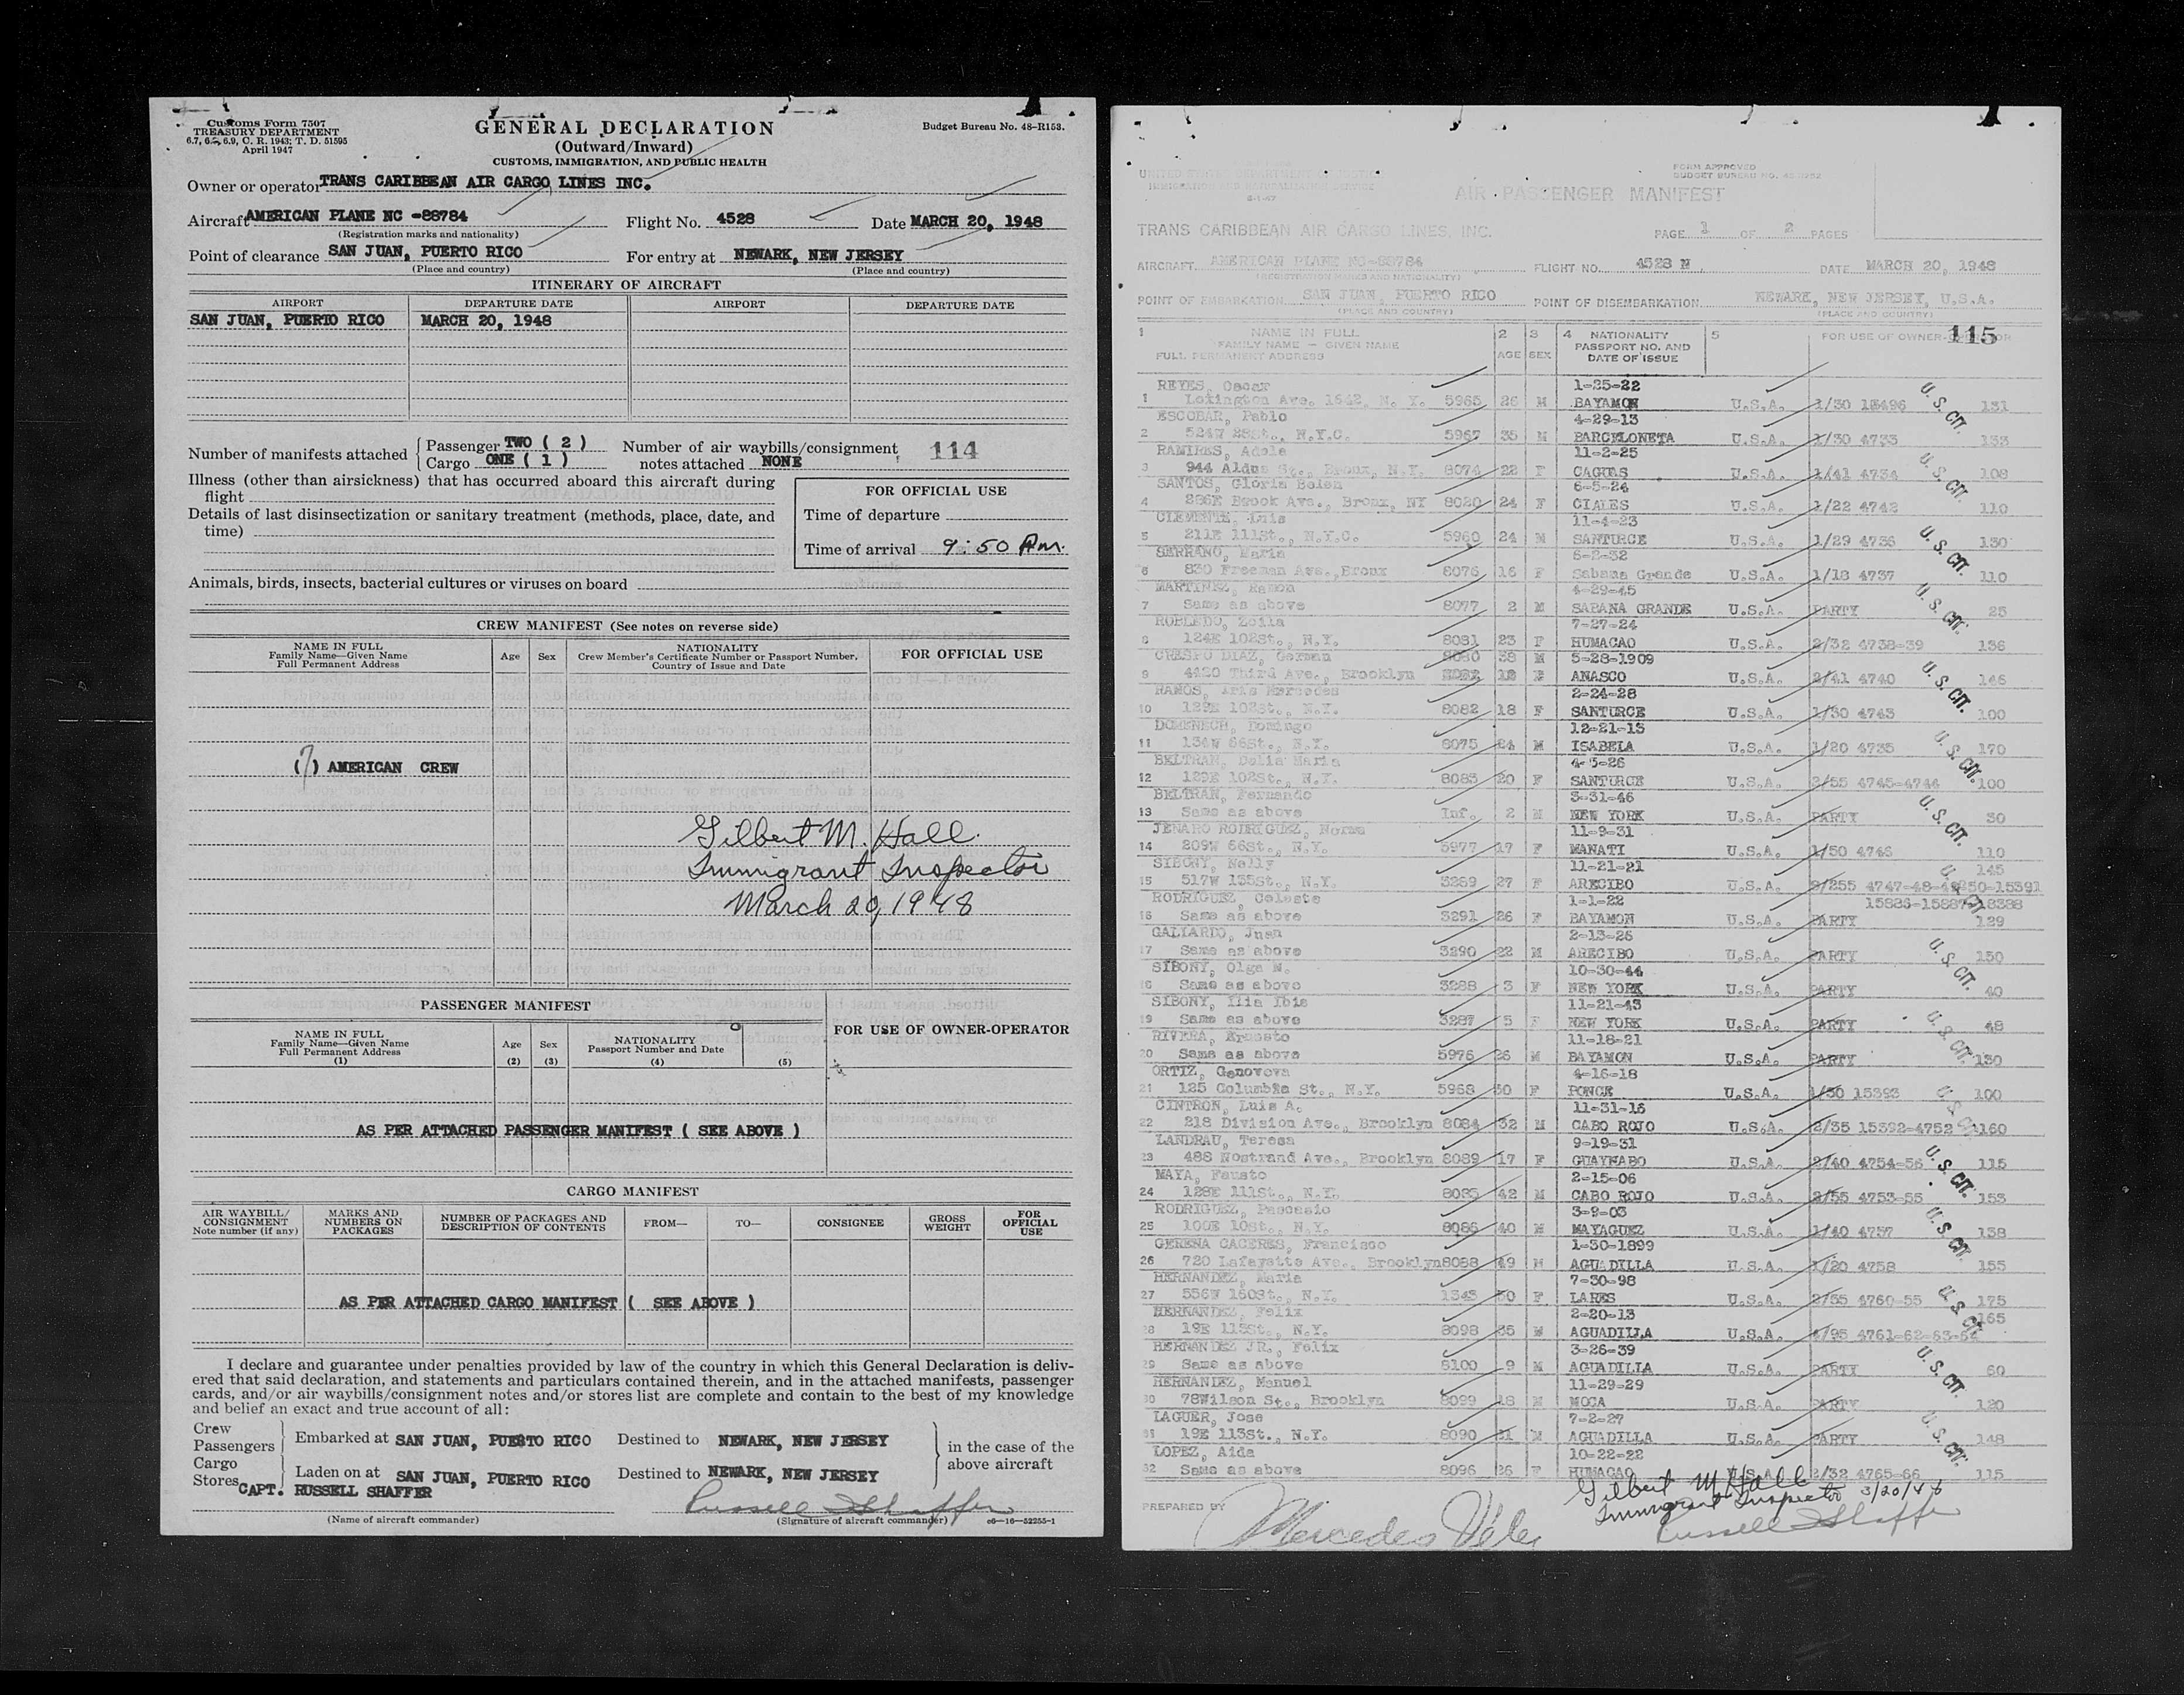 Customs Form 7507
TREASURY DEPARTMENT
6.7, 6.9, C. R. 1943; T. D. 51595
April 1947
GENERAL DECLARATION
(Outward/Inward)
CUSTOMS, IMMIGRATION, AND PUBLIC HEALTH
Budget Bureau No. 48-R153.
Owner or operator TRANS CARIBBEAN AIR CARGO LINES INC.
Aircraft AMERICAN PLANE NC -88784 Flight No. 4528 Date MARCH 20, 1948
(Registration marks and nationality)
Point of clearance SAN JUAN, PUERTO RICO For entry at NEWARK, NEW JERSEY
(Place and country) (Place and country)
ITINERARY OF AIRCRAFT
AIRPORT DEPARTURE DATE AIRPORT DEPARTURE DATE
SAN JUAN, PUERTO RICO MARCH 20, 1948
Number of manifests attached { Passenger TWO ( 2 ) Cargo ONE ( 1 )
Number of air waybills/consignment notes attached NONE
114
Illness (other than airsickness) that has occurred aboard this aircraft during
flight
Details of last disinsectization or sanitary treatment (methods, place, date, and
time)
FOR OFFICIAL USE
Time of departure
Time of arrival 9:50 Am.
Animals, birds, insects, bacterial cultures or viruses on board
CREW MANIFEST (See notes on reverse side)
NAME IN FULL
Family Name—Given Name
Full Permanent Address
Age Sex
NATIONALITY
Crew Member's Certificate Number or Passport Number,
Country of Issue and Date
FOR OFFICIAL USE
(7) AMERICAN CREW
Gilbert M. Hall
Immigrant Inspector
March 20, 1948
PASSENGER MANIFEST
NAME IN FULL
Family Name—Given Name
Full Permanent Address
(1)
Age
(2)
Sex
(3)
NATIONALITY
Passport Number and Date
(4) (5)
FOR USE OF OWNER-OPERATOR
AS PER ATTACHED PASSENGER MANIFEST ( SEE ABOVE )
CARGO MANIFEST
AIR WAYBILL/
CONSIGNMENT
Note number (if any)
MARKS AND
NUMBERS ON
PACKAGES
NUMBER OF PACKAGES AND
DESCRIPTION OF CONTENTS
FROM— TO— CONSIGNEE
GROSS
WEIGHT
FOR
OFFICIAL
USE
AS PER ATTACHED CARGO MANIFEST ( SEE ABOVE )
I declare and guarantee under penalties provided by law of the country in which this General Declaration is deliv-
ered that said declaration, and statements and particulars contained therein, and in the attached manifests, passenger
cards, and/or air waybills/consignment notes and/or stores list are complete and contain to the best of my knowledge
and belief an exact and true account of all:
Crew
Passengers
Cargo
Stores
Embarked at SAN JUAN, PUERTO RICO Destined to NEWARK, NEW JERSEY
Laden on at SAN JUAN, PUERTO RICO Destined to NEWARK, NEW JERSEY
in the case of the
above aircraft
CAPT. RUSSELL SHAFFER
Russell Shaffer
(Name of aircraft commander) (Signature of aircraft commander) c6—16—52255-1
FORM APPROVED
AIR PASSENGER MANIFEST
TRANS CARIBBEAN AIR CARGO LINES, INC.
PAGE 1 OF 2 PAGES
AIRCRAFT AMERICAN PLANE NC-88784 FLIGHT NO. 4528 N DATE MARCH 20, 1948
(REGISTRATION MARKS AND NATIONALITY)
POINT OF EMBARKATION SAN JUAN, PUERTO RICO POINT OF DISEMBARKATION NEWARK, NEW JERSEY, U.S.A.
(PLACE AND COUNTRY) (PLACE AND COUNTRY)
1 NAME IN FULL 2 3 4 NATIONALITY 5 FOR USE OF OWNER- 115
FAMILY NAME — GIVEN NAME AGE SEX PASSPORT NO. AND
FULL PERMANENT ADDRESS DATE OF ISSUE
REYES, Oscar 1-25-22
1 Lexington Ave. 1642, N. Y. 5965 26 M BAYAMON U.S.A. 1/30 15496 131
ESCOBAR, Pablo 4-29-13
2 524W 28St., N.Y.C. 5967 35 M BARCELONETA U.S.A. 1/30 4733 133
RAMIRES, Adela 11-2-25
3 944 Aldus St., Bronx, N.Y. 8074 22 F CAGUAS U.S.A. 1/41 4734 108
SANTOS, Gloria Belen 6-5-24
4 286E Brook Ave., Bronx, NY 8020 24 F CIALES U.S.A. 1/22 4742 110
CLEMENTE, Luis 11-4-23
5 211E 111St., N.Y.C. 5960 24 M SANTURCE U.S.A. 1/29 4736 130
SERRANO, Maria 6-2-32
6 830 Freeman Ave., Bronx 8076 16 F Sabana Grande U.S.A. 1/18 4737 110
MARTINEZ, Ramon 4-29-45
7 Same as above 8077 2 M SABANA GRANDE U.S.A. PARTY 25
ROBLEDO, Zoila 7-27-24
8 124E 102St., N.Y. 8081 23 F HUMACAO U.S.A. 2/32 4738-39 136
CRESPO DIAZ, German 8080 38 M 5-28-1909
9 4420 Third Ave., Brooklyn ANASCO U.S.A. 2/41 4740 146
RAMOS, Iris Mercedes 2-24-28
10 129E 102St., N.Y. 8082 18 F SANTURCE U.S.A. 1/30 4743 100
DOMENECH, Domingo 12-21-13
11 134W 66St., N.Y. 8075 34 M ISABELA U.S.A. 1/20 4735 170
BELTRAN, Delia Maria 4-5-26
12 129E 102St., N.Y. 8083 20 F SANTURCE U.S.A. 2/55 4745-4744 100
BELTRAN, Fernando 3-31-46
13 Same as above Inf. 2 M NEW YORK U.S.A. PARTY 30
JENARO RODRIGUEZ, Norma 11-9-31
14 209W 66St., N.Y. 5977 17 F MANATI U.S.A. 1/50 4746 110
SIBONY, Nelly 11-21-21 145
15 517W 135St., N.Y. 3289 27 F ARECIBO U.S.A. 9/255 4747-48-49-50-15391
RODRIGUEZ, Celeste 1-1-22
16 Same as above 3291 26 F BAYAMON U.S.A. PARTY 129
GALIARDO, Juan 2-13-26
17 Same as above 3290 22 M ARECIBO U.S.A. PARTY 150
SIBONY, Olga N. 10-30-44
18 Same as above 3288 3 F NEW YORK U.S.A. PARTY 40
SIBONY, Ilia Ibis 11-21-43
19 Same as above 3287 5 F NEW YORK U.S.A. PARTY 48
RIVERA, Ernesto 11-18-21
20 Same as above 5976 26 M BAYAMON U.S.A. PARTY 130
ORTIZ, Genoveva 4-16-18
21 125 Columbia St., N.Y. 5968 30 F PONCE U.S.A. 1/30 15393 100
CINTRON, Luis A. 11-31-16
22 218 Division Ave., Brooklyn 8084 32 M CABO ROJO U.S.A. 2/35 15392-4752 160
LANDRAU, Teresa 9-19-31
23 488 Nostrand Ave., Brooklyn 8089 17 F GUAYNABO U.S.A. 2/40 4754-56 115
MAYA, Fausto 2-15-06
24 128E 111St., N.Y. 8085 42 M CABO ROJO U.S.A. 2/55 4753-55 153
RODRIGUEZ, Pascasio 3-9-03
25 100E 10St., N.Y. 8086 40 M MAYAGUEZ U.S.A. 1/40 4757 138
GERENA CACERES, Francisco 1-30-1899
26 720 Lafayette Ave., Brooklyn 8088 49 M AGUADILLA U.S.A. 1/20 4758 155
HERNANDEZ, Maria 7-30-98
27 556W 160St., N.Y. 1343 50 F LARES U.S.A. 2/55 4760-55 175
HERNANDEZ, Felix 2-20-13 165
28 19E 113St., N.Y. 8098 35 M AGUADILLA U.S.A. 4/95 4761-62-63-64
HERNANDEZ JR., Felix 3-26-39
29 Same as above 8100 9 M AGUADILLA U.S.A. PARTY 60
HERNANDEZ, Manuel 11-29-29
30 78Wilson St., Brooklyn 8099 18 M MOCA U.S.A. PARTY 120
LAGUER, Jose 7-2-27
31 19E 113St., N.Y. 8090 21 M AGUADILLA U.S.A. PARTY 148
LOPEZ, Aida 10-22-22
32 Same as above 8096 26 F HUMACAO U.S.A. 2/32 4765-66 115
U. S. CIT.
Gilbert M. Hall
Immigrant Inspector 3/20/48
PREPARED BY Mercedes Velez Russell Shaffer